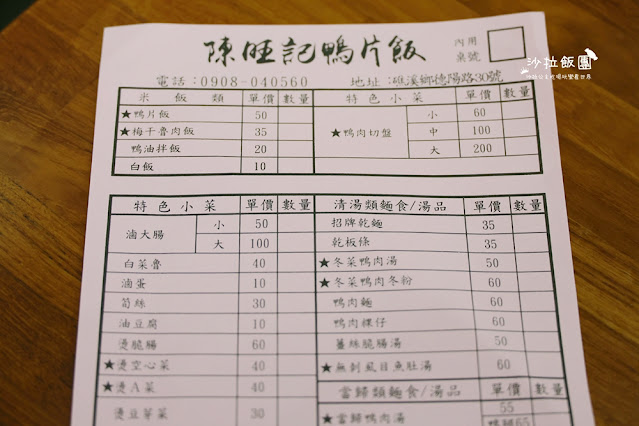 陳旺記鴨片飯
內用
桌號
沙拉飯團
電話：0908-040560 地址：礁溪鄉德陽路30號
米飯類 單價 數量
★鴨片飯 50
★梅干魯肉飯 35
鴨油拌飯 20
白飯 10
特色小菜 單價 數量
★鴨肉切盤 小 60
中 100
大 200
特色小菜 單價 數量
滷大腸 小 50
大 100
白菜魯 40
滷蛋 10
筍絲 30
油豆腐 10
燙脆腸 60
★燙空心菜 40
★燙A菜 40
燙豆芽菜 30
清湯類麵食/湯品 單價 數量
招牌乾麵 35
乾板條 35
★冬菜鴨肉湯 50
★冬菜鴨肉冬粉 60
鴨肉麵 60
鴨肉粿仔 60
薑絲脆腸湯 50
★無刺虱目魚肚湯 60
當歸類麵食/湯品 單價 數量
★當歸鴨肉湯 55
鴨腿65